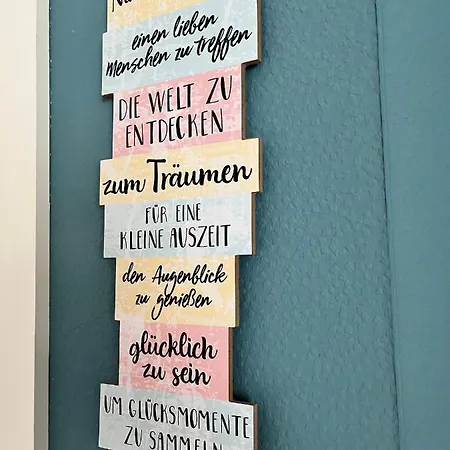 einen lieben
Menschen zu treffen
DIE WELT ZU
ENTDECKEN
zum Träumen
FÜR EINE
KLEINE AUSZEIT
den Augenblick
zu genießen
glücklich
zu sein
UM GLÜCKSMOMENTE
ZU SAMMELN